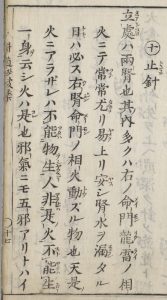 十 止針
立處ハ兩腎也其内多クハ右ノ命門龍雷ノ相
火ニテ常常亢リ易上リ安シ腎水ヲ漏タル
日ハ必ス右腎命門ノ相火動ズル物也天是
火ニアラザレハ不能生物人非是火不能生
一身ト云シ火ハ是也邪氣ニモ五邪アリトハイ